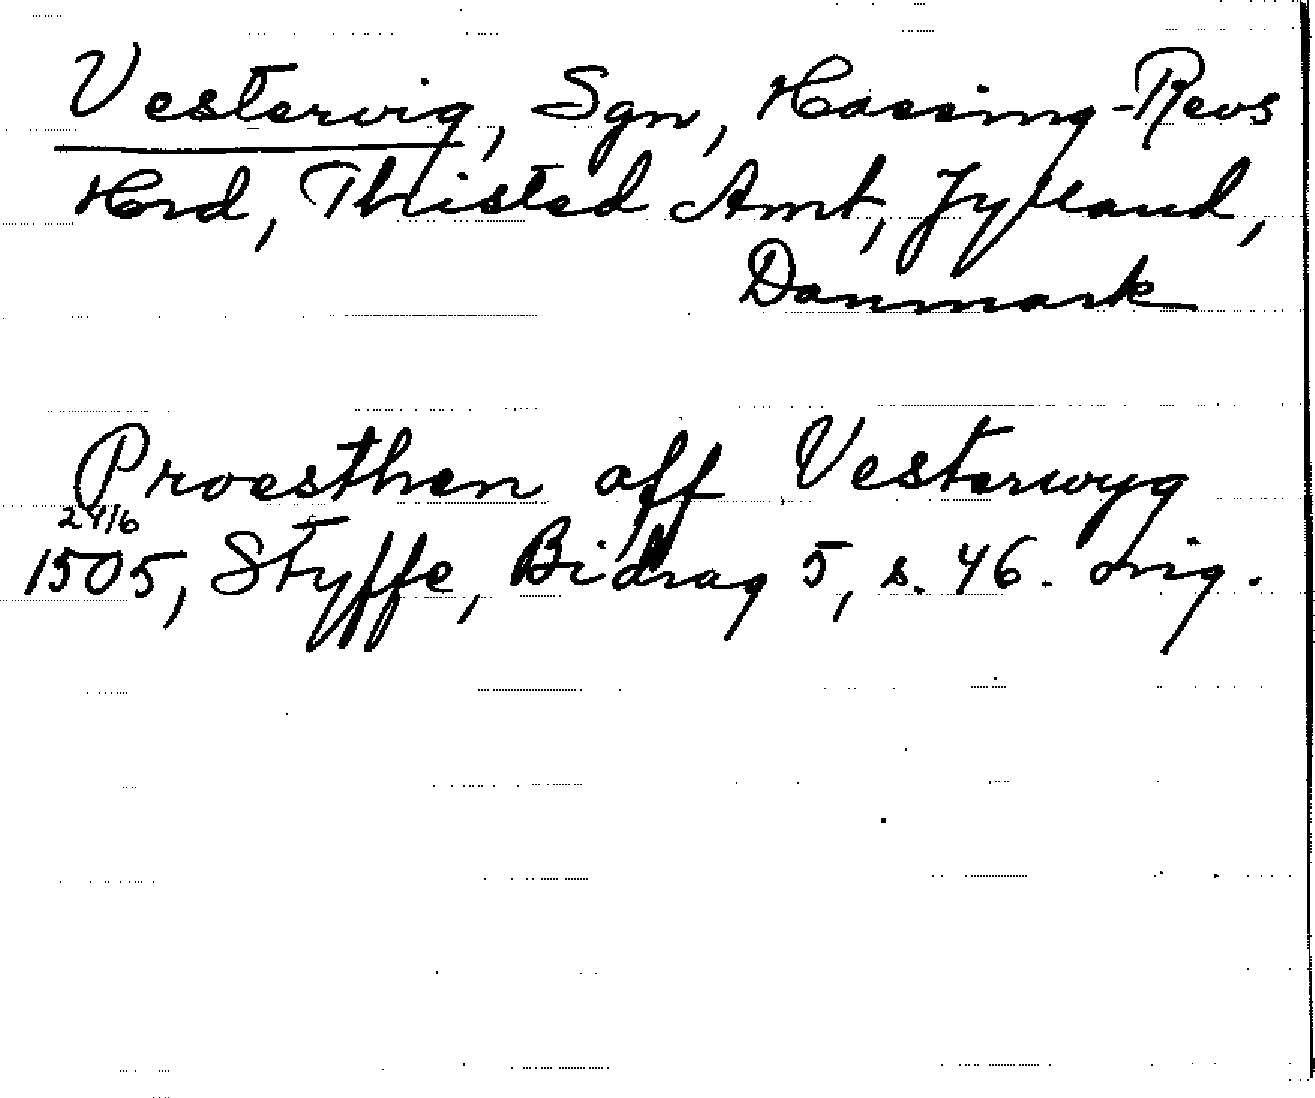 Vestervig, Sgn, Hassing-Revs
Hrd, Thisted Amt, Jylland,
Danmark
Proesthen aff Vesterwyg
24/6
1505, Styffe, Bidrag 5, s. 46. orig.